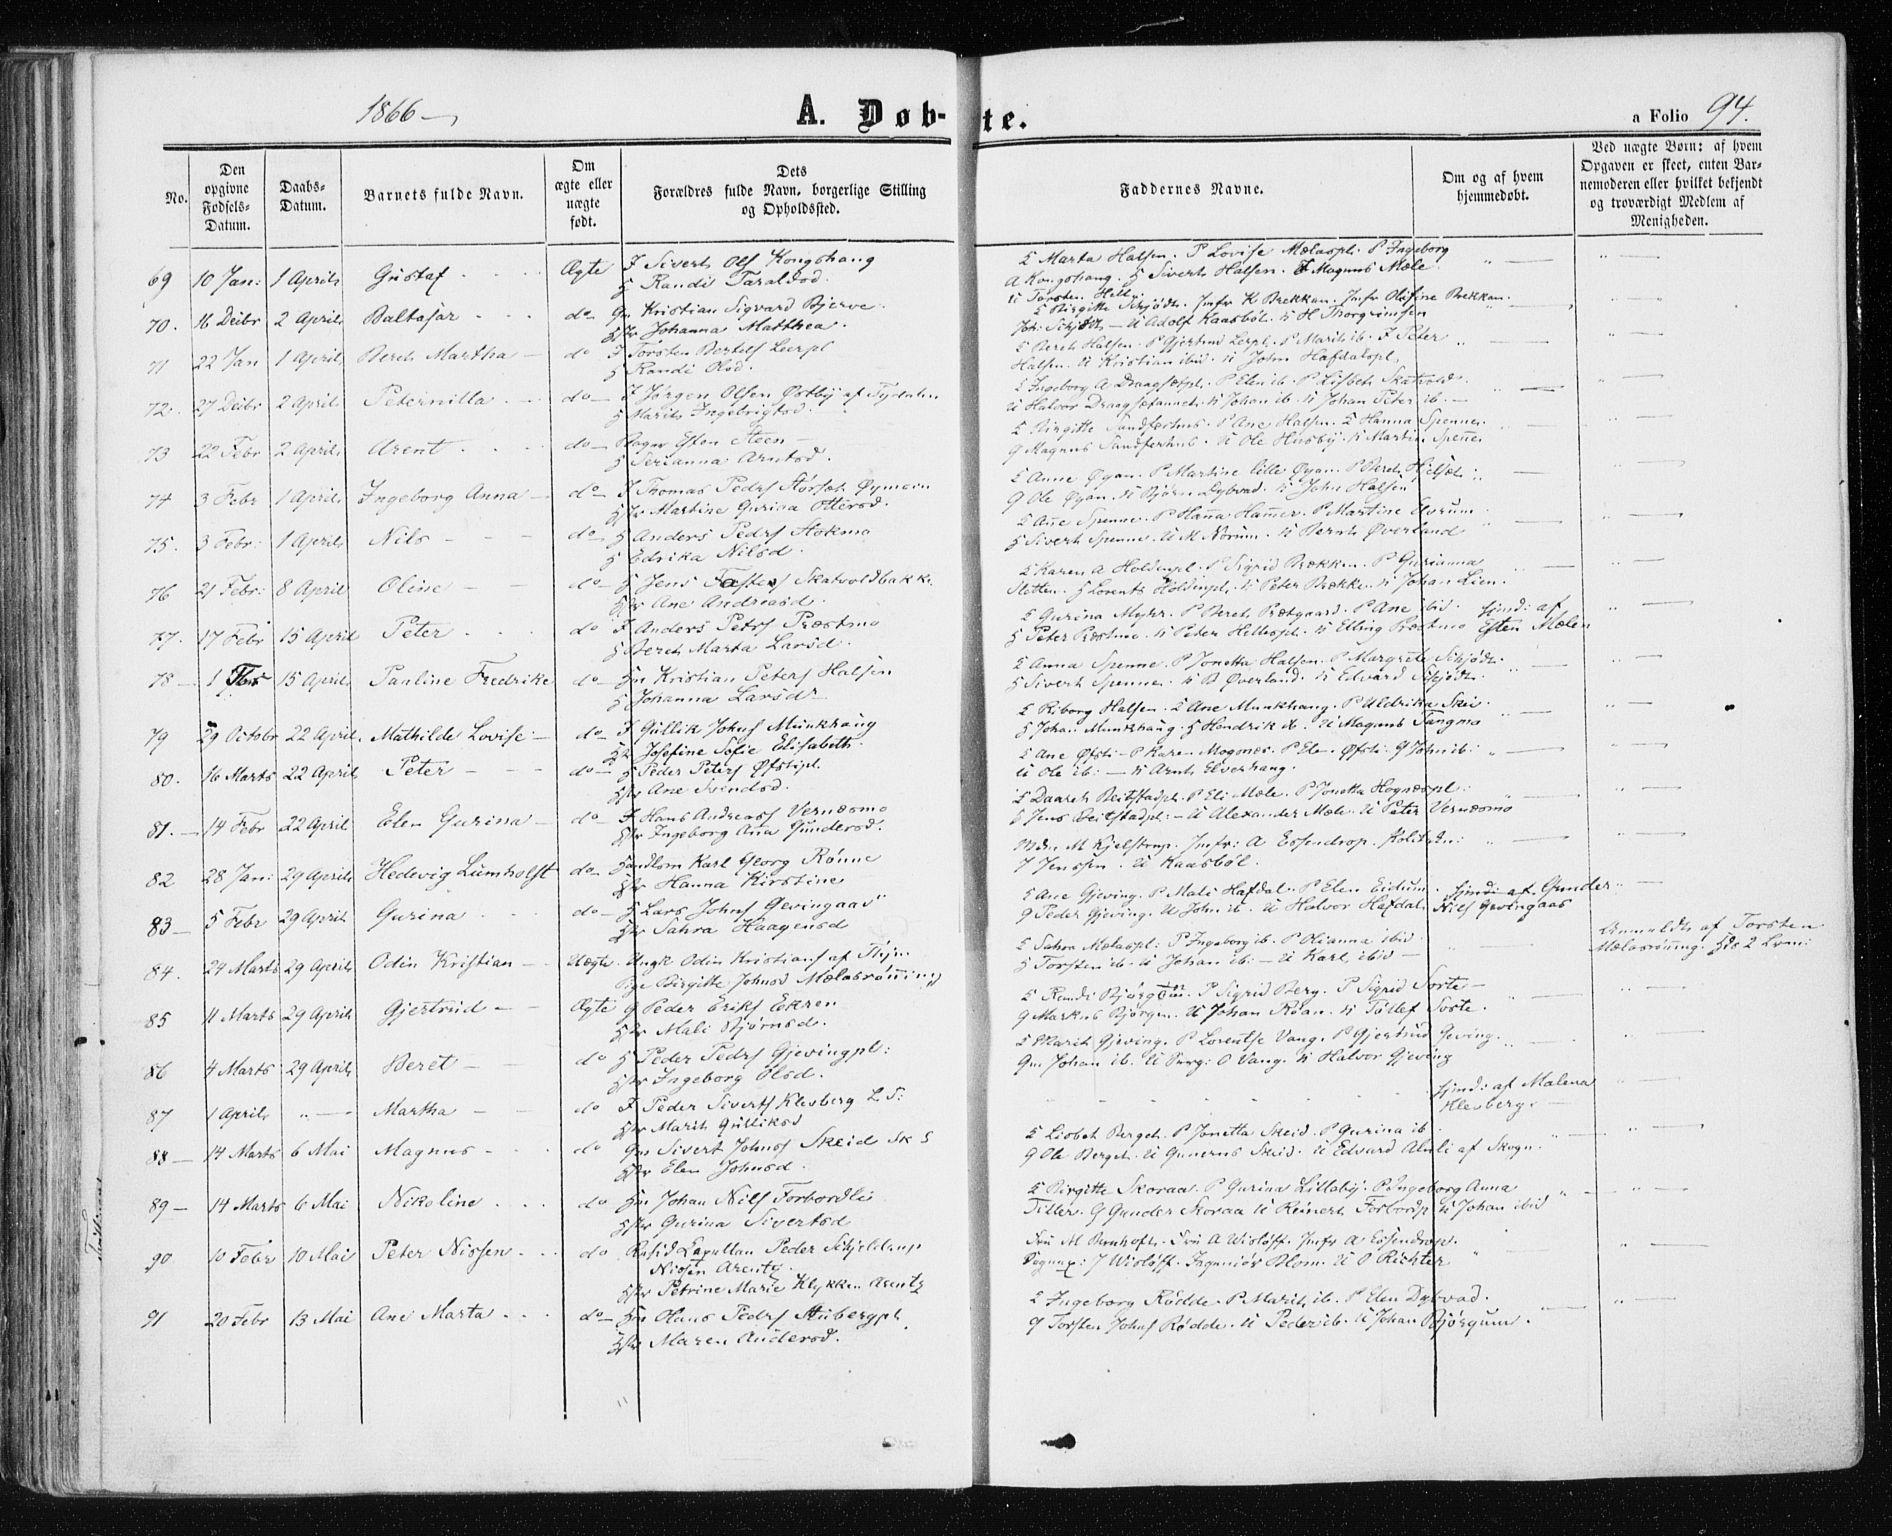 1866
A. Døb-
te.
a Folio 94.
No.
Den opgivne Fødsels-Datum.
Daabs-Datum.
Barnets fulde Navn.
Om ægte eller uægte født.
Dets Forældres fulde Navn, borgerlige Stilling og Opholdssted.
Faddernes Navne.
Om og af hvem hjemmedøbt.
Ved uægte Børn: af hvem Opgaven er skeet, enten Barnemoderen eller hvilket bekjendt og troværdigt Medlem af Menigheden.
69 10 Jan: 1 April Gustaf Ægte Sivert Ols Kongshaug
Randi Taraldsd. Marta Halsen. P Lovise Mælaspl. P Ingeborg
A Kongshaug. Sivert Halsen. Magnus Mæle
U Torsten Hell
70. 16 Decbr 2 April Baltasar do Kristian Sigvard Bjerve
Johanna Matthea. Birgitte Schjødt. Jmfr K Brekkan. Jmfr Olufine Brekkan.
Joh: Schjødt U Adolf Kaasbøl. U H Thorgrimsen
71 22 Jan 1 April Beret Martha do Torsten Bertels Leerpl
Randi Olsd. Beret Halsen. P Gjertrud Lerpl. P Marit ib. Peter
Halsen. U Kristian ibid. U John Hafdalspl.
72. 27 Decbr 2 April Peternilla do Jørgen Olsen Østby af Tydalen
Marit Ingebrigtsd. Ingeborg A Draagsetpl. P Elen ib. P Lisbet Skatvold.
U Halvor Draagset U Johan ib. U Johan Peter ib.
73 22 Febr 2 April Arent do Esten Steen
Serianna Arntsd. Birgitte Sandferhus. P Ane Halsen. Hanna Spenne.
Magnus Sandferhus. U Ole Husby. U Martin Spenne
74 3 Febr 1 April Ingeborg Anna do Thomas Peders Storset Øymoen
Martine Gurina Ottersd. Anne Øyan. P Martine lille Øyan. P Beret Hjelset
Ole Øyan. U Bjørn Dybvad. U John Halsen
75. 3 Febr: 1 April Nils do Anders Peders Stokmo
Edrika Nilsd. Ane Spenne. P Hanna Hammer. P Martine Elvrum.
Sivert Spenne. U M Norum. U Bernt Øverland
76 21 Febr: 8 April Oline do Jens Skatvoldbakk.
Ane Andreasd. Karen A Holdenpl. P Sigrid Brækken. P Gurianna
Stetten. Lorents Holdenpl, U Peter Brække. U Johan Lien.
77. 17 Febr 15 April Peter do Anders Peters Præstmo
Beret Marta Larsd. Gurina Myhr. P Beret Prætgaard. P Ane ibid. hjmd: af
Peter Præstmo. U Peter Hellespl. U Elling Præstmo Esten Mælen
78 1 15 April Pauline Fredrike do Kristian Peters Halsen
Johanna Larsdr Anna Spenne. P Jonetta Halsen. P Margrete Schjødt.
Sivert Spenne. U B Øverland. U Edvard Schjødt.
79 29 Octobr 22 April. Mathilde Lovise do Gullik Johns Munkhaug
Josefine Sofie Elisabeth. Riborg Halsen. Ane Munkhaug. P Uldrika Skei.
Johan Munkhaug. Hendrik ib. U Magnus Tangmo
80. 16 Marts 22 April Peter do Peder Peters Øfstipl.
Ane Svendsd. Ane Øfsti. P Karen Mogones. P Elen Øfsti. John ib:
U Ole ib: U Arnt Elverhaug.
81. 14 Febr 22 April Elen Gurina do Hans Andreas Vernesmo
Ingeborg Ana Gundersd. Daaret Beitstadpl. P Eli Mæle. P Jonetta Hognespl:
Jens Beitstadpl: U Alexander Mæle. U Peter Vernesmo
82 28 Jan: 29 April Hedevig Lumholst do Handlsm Karl Georg Rønne
Hanna Kirstine Mdm M Kjelstrup. Jmfr: A Essendrop.
J Jenssen. U Kaasbøl.
83 5 Febr 29 April Gurina do Lars Johns Gevingaas
Sahra Haagensd Ane Gjeving. P Mali Hafdal. P Elen Eidum. hjmd: af Gunder
Peder Gjeving. U John ib. U Halvor Hafdal. Nils Gevingaas
84. 24 Marts 29 April Odin Kristian Uægte. Ungk Odin Kristians af Thjm
Pige Birgitte Johnsd Mælasrønning Sahra Mælaspl: P Ingeborg ib. P Olianna ibid
Torsten ib. U Johan ib: U Karl ibid Anmeldt af Torsten
Mælasrønning.
85 11 Marts 29 April Gjertrud Ægte Peder Eriks Ekren
Mali Bjørnsd. Randi Bjørgen. P Sigrid Berg. P Sigrid Soste
Markus Bjørgen. U Johan Roan. U Tollef Soste.
86 4 Marts 29 April Beret do Peder Peders Gjevingpl:
Ingeborg Olsd. Marit Gjeving. P Lorentse Vang. P Gjertrud Geving.
Johan ib. U O Vang. U Halvor Gjeving
87 1 April Martha do Peder Siverts Klesberg L S:
Marit Gulliksd hjmd: af Malena
Klesberg.
88 14 Marts 6 Mai Magnus do Sivert Johns Skeid Sk S
Elen Johnsd. Lisbet Berget. P Jonetta Skeid. P Gurina ib
Ole Berget. U Gunerus Skeid. U Edvard Almli af Skogn.
89 14 Marts 6 Mai Nikoline do Johan Nils Forbordli
Gurina Sivertsd Birgitte Skoraa. P Gurina Lilleby. P Ingeborg Anna
Tiller. Gunder Skoraa U Reinert Forbordpl U Johan ibid
90 10 Febr 10 Mai Peter Nissen do Resid Kapellan Peder Schjelderup
Nissen Arentz.
Petrine Marie Klykken Arentz Fru M Bernhoft. Fru A Wisløff. Jmfr A Essendrop.
J Wisløff. Ingeniør Blom. U O Richter
91 20 Febr 13 Mai Ane Marta do Hans Peders Stubergpl.
Maren Andersd. Ingeborg Rødde. P Marit ib. P Elen Dybvad.
Torsten Johns Rødde. U Peder ib. U Johan Bjørgum.